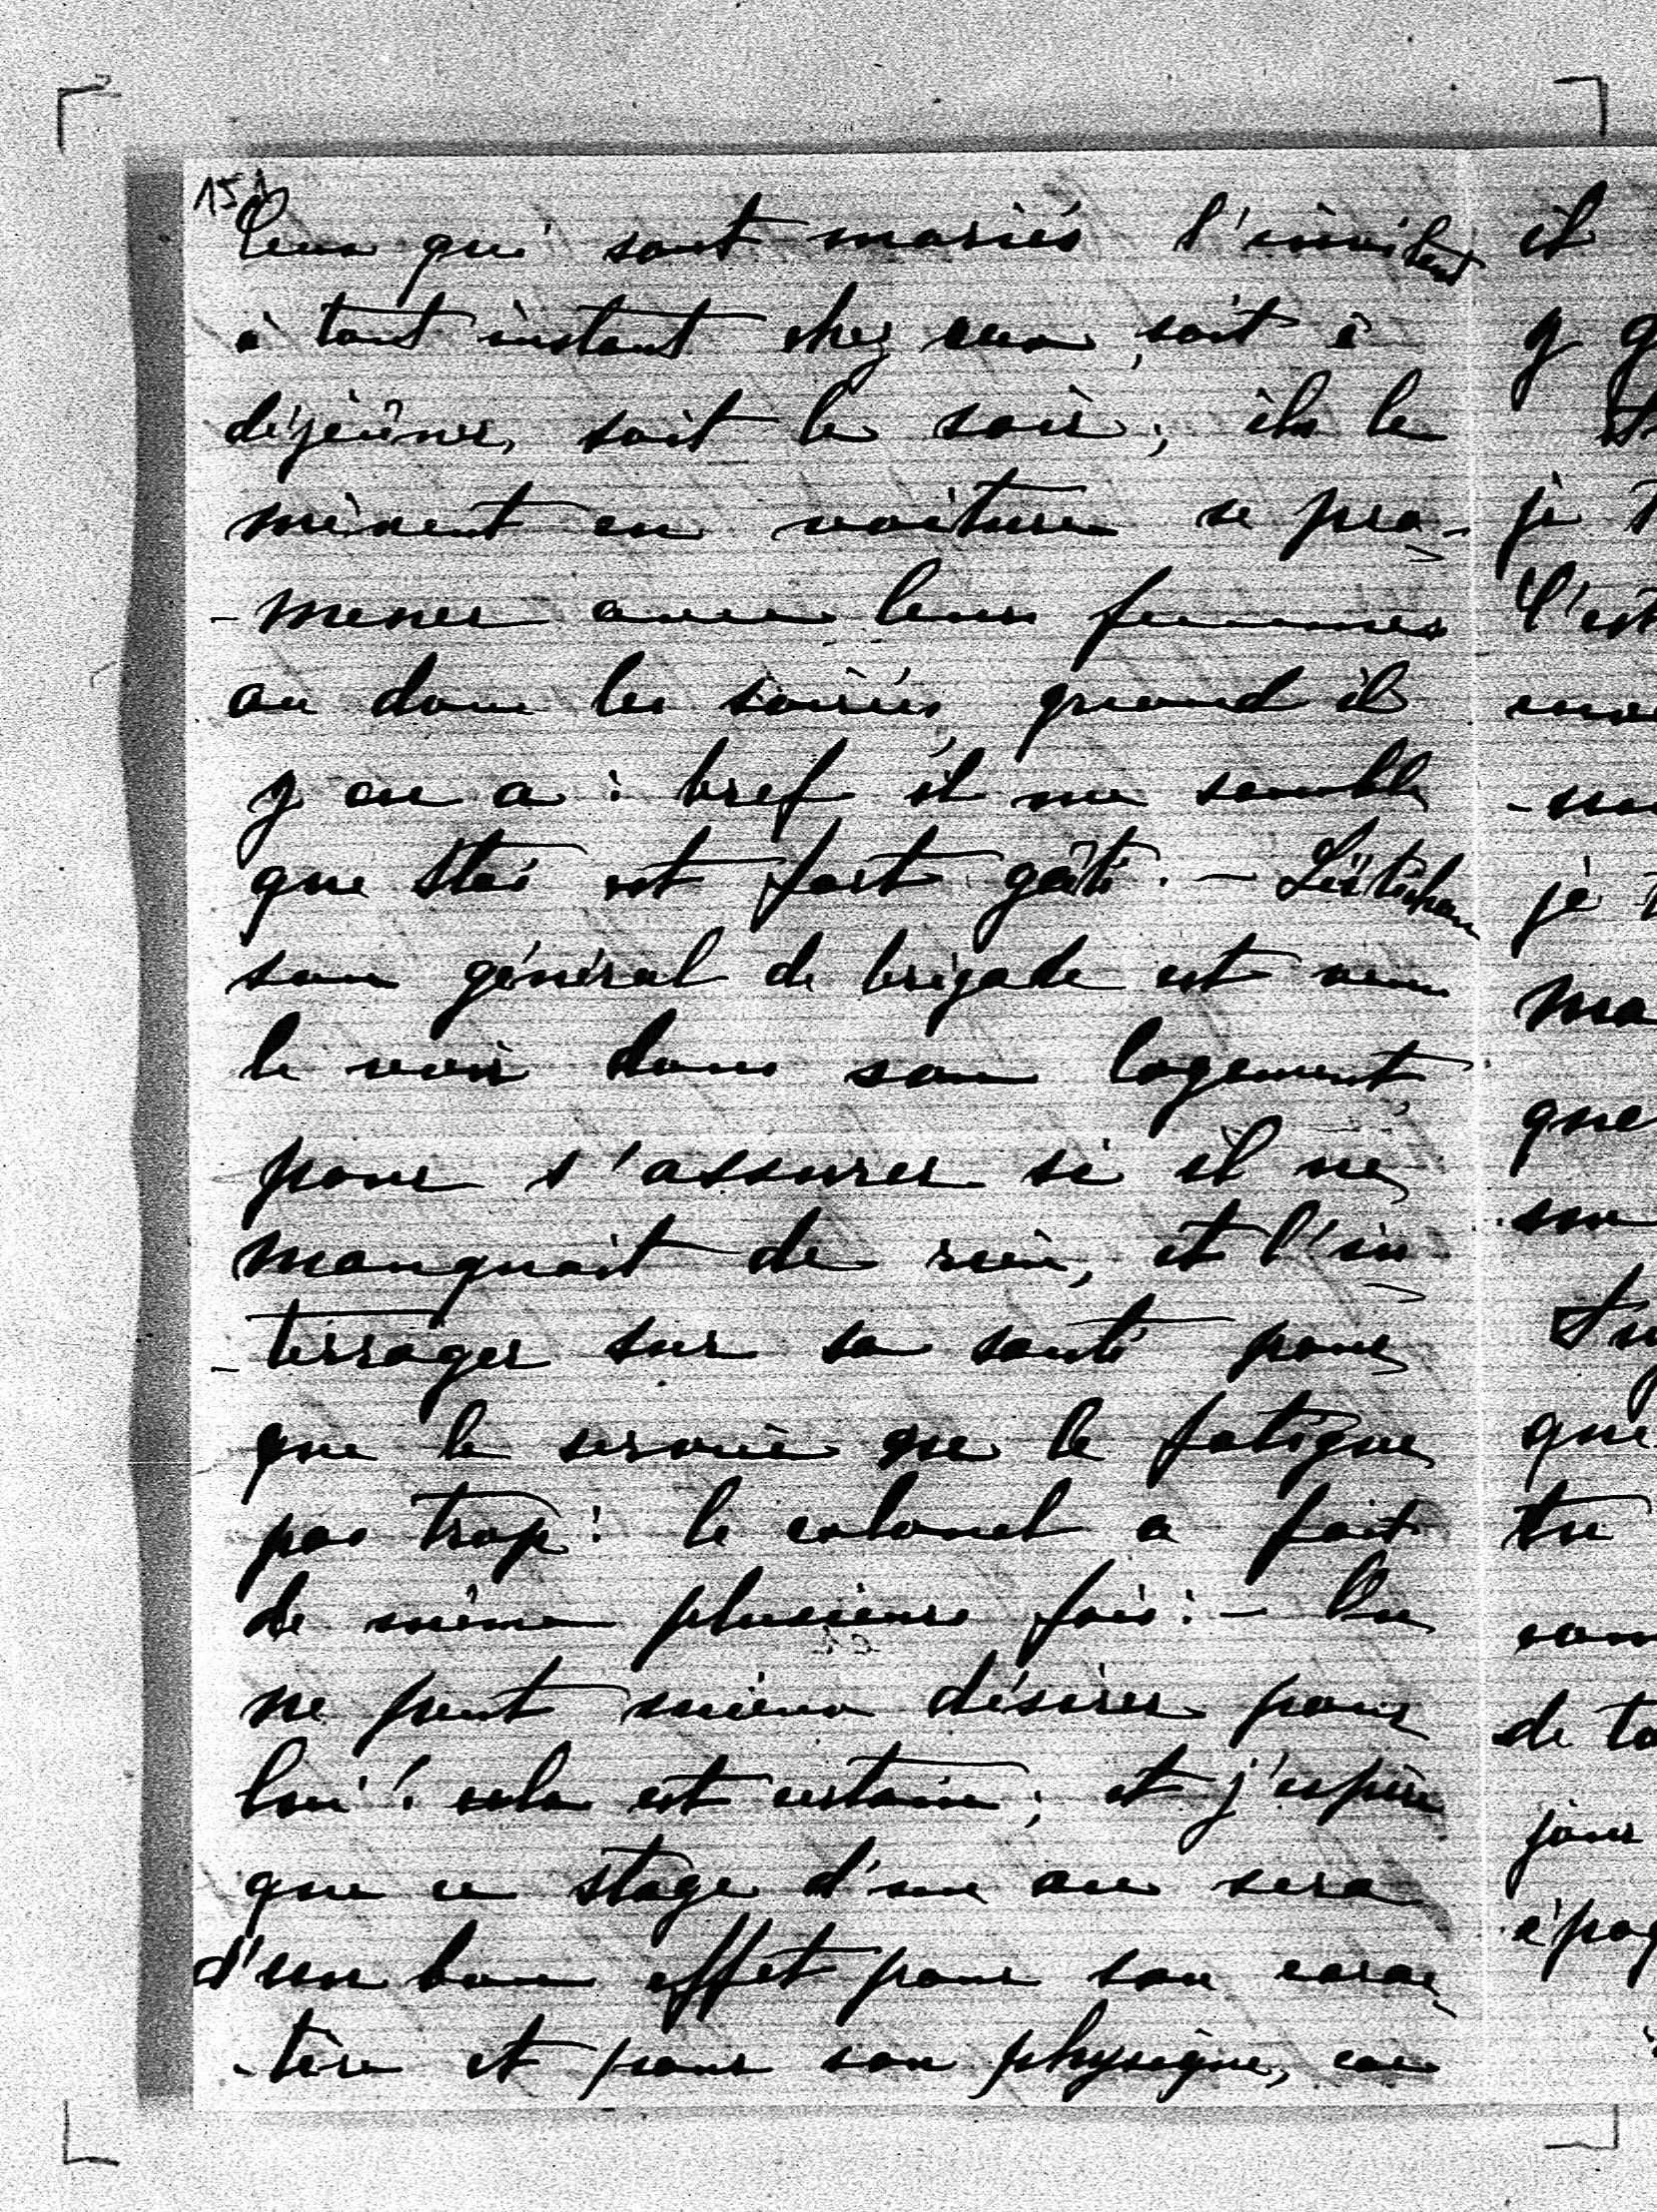 151
Ceux qui sont mariés l'invitent
à tout instant chez eux, soit à
déjeûner, soit le soir ; ils le
mènent en voiture se pro-
-mener avec leurs femmes
ou dans les soirées, quand il
y en a : bref il me semble
que Staś est fort gâté. —
son général de brigade est venu
le voir dans son logement,
pour s'assurer si il ne
manquait de rien, et l'in-
-terroger sur sa santé pour
que le service ne le fatigue
pas trop : le colonel a fait
de même plusieurs fois : — On
ne peut mieux désirer pour
lui ! cela est certain ; et j'espère
que ce stage d'un an sera
d'un bon effet pour son carac-
-tère et pour son physique, car
il
je
C'est
je
que
que
tu
de
jour